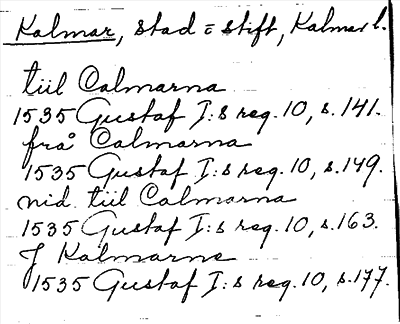 Kalmar, stad o stift, Kalmar l.
till Calmarna
1535 Gustaf I:s reg. 10, s. 141.
frå Calmarna
1535 Gustaf I:s reg. 10, s. 149.
nid till Calmarna
1535 Gustaf I:s reg. 10, s. 163.
J Kalmarne
1535 Gustaf I:s reg. 10, s. 177.